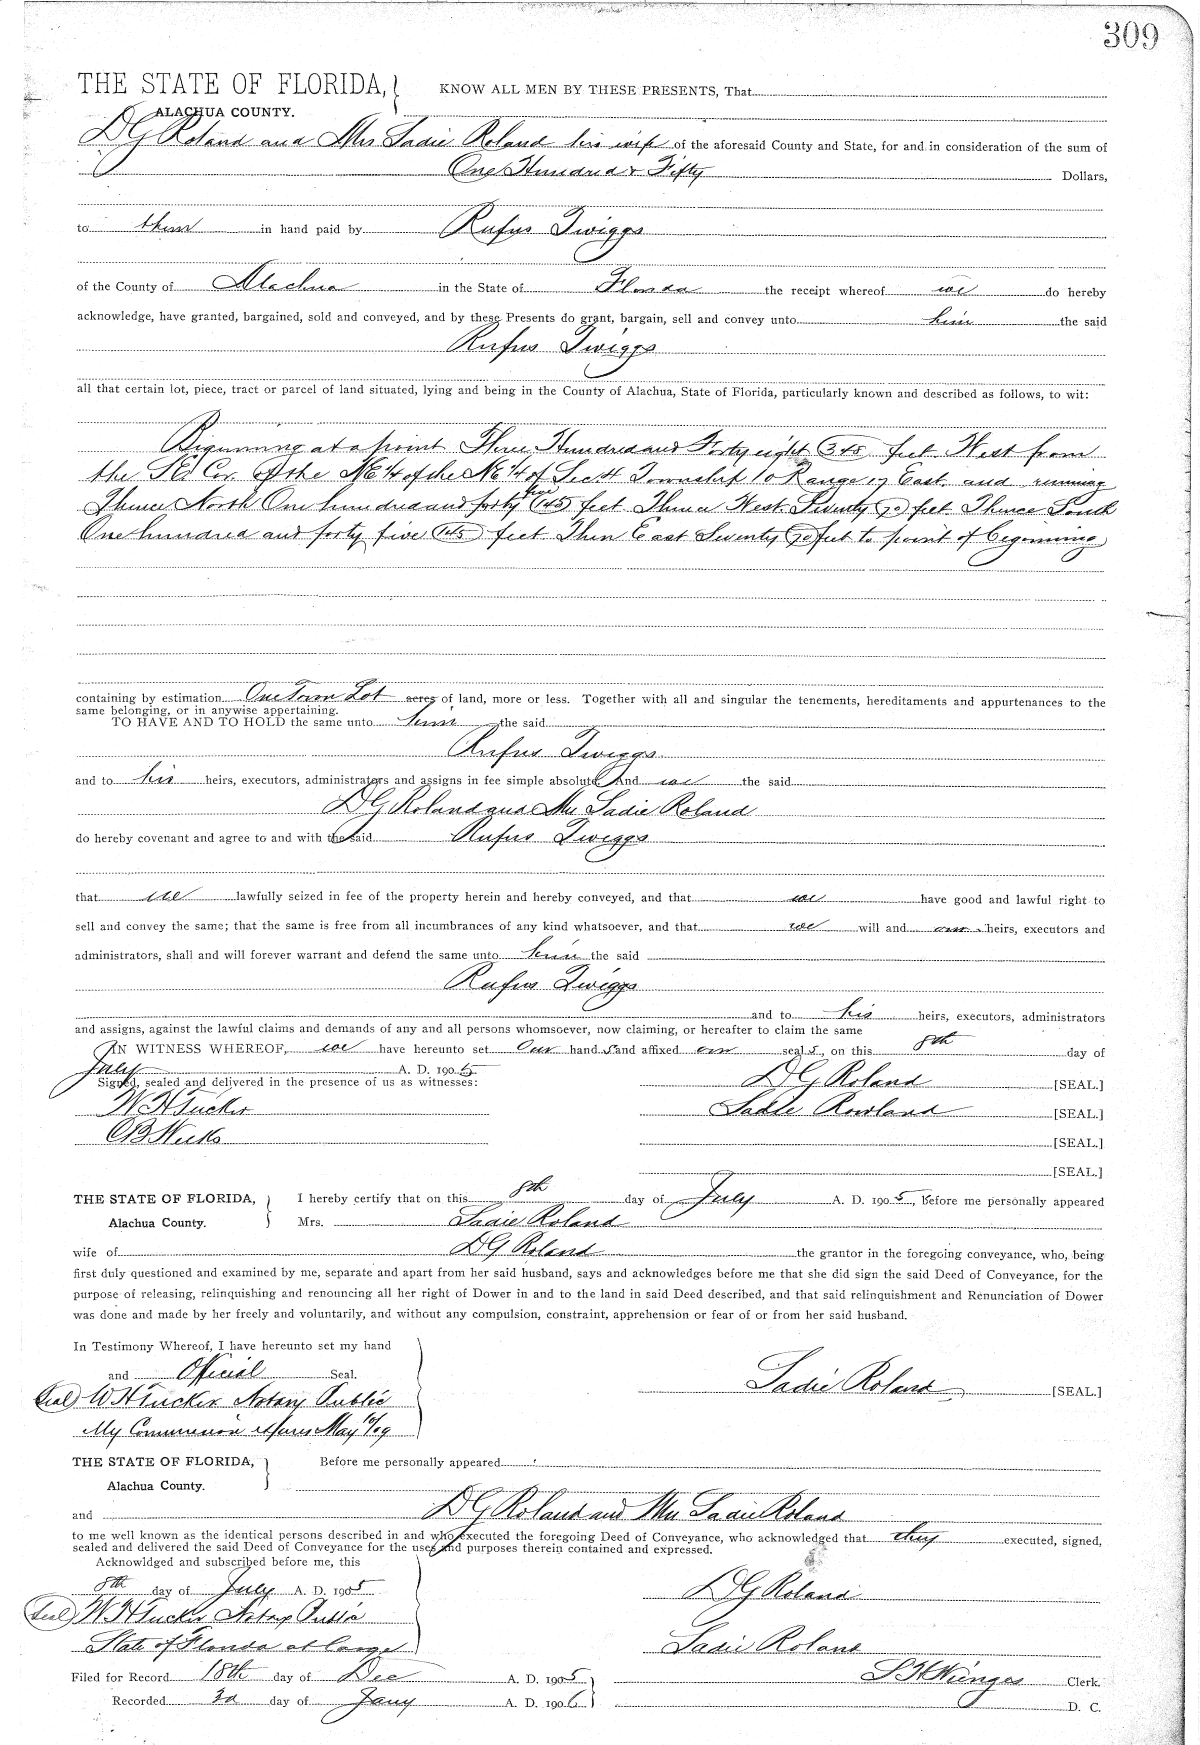 309
THE STATE OF FLORIDA, KNOW ALL MEN BY THESE PRESENTS, That
ALACHUA COUNTY.
D G Roland and Mrs Sadie Roland his wife of the aforesaid County and State, for and in consideration of the sum of
One Hundred & Fifty Dollars,
to them in hand paid by Rufus Twiggs
of the County of Alachua in the State of Florida the receipt whereof we do hereby
acknowledge, have granted, bargained, sold and conveyed, and by these Presents do grant, bargain, sell and convey unto him the said
Rufus Twiggs
all that certain lot, piece, tract or parcel of land situated, lying and being in the County of Alachua, State of Florida, particularly known and described as follows, to wit:
Biginning at a point Three Hundred and Forty eight (348) feet West from
the SE Cor. of the NE 1/4 of the NE 1/4 of Sec 4 Township 10 Range 17 East. and running
Thence North One hundred and forty five (145) feet Thence West Seventy (70) feet Thence South
One hundred and forty five (145) feet Then East Seventy (70) feet to point of beginning
containing by estimation One Town Lot acres of land, more or less. Together with all and singular the tenements, hereditaments and appurtenances to the
same belonging, or in anywise appertaining.
TO HAVE AND TO HOLD the same unto him the said
Rufus Twiggs
and to his heirs, executors, administrators and assigns in fee simple absolute. And we the said
D G Roland and Mrs Sadie Roland
do hereby covenant and agree to and with the said Rufus Twiggs
that we lawfully seized in fee of the property herein and hereby conveyed, and that we have good and lawful right to
sell and convey the same; that the same is free from all incumbrances of any kind whatsoever, and that we will and our heirs, executors and
administrators, shall and will forever warrant and defend the same unto him the said
Rufus Twiggs
and to his heirs, executors, administrators
and assigns, against the lawful claims and demands of any and all persons whomsoever, now claiming, or hereafter to claim the same
IN WITNESS WHEREOF, we have hereunto set Our hand s and affixed our seal s, on this 8th day of
July A. D. 1905
Signed, sealed and delivered in the presence of us as witnesses: D G Roland [SEAL.]
W H Tucker Sadie Rowland [SEAL.]
C B Weeks [SEAL.]
[SEAL.]
THE STATE OF FLORIDA, I hereby certify that on this 8th day of July A. D. 1905, before me personally appeared
Alachua County. Mrs. Sadie Roland
wife of D G Roland the grantor in the foregoing conveyance, who, being
first duly questioned and examined by me, separate and apart from her said husband, says and acknowledges before me that she did sign the said Deed of Conveyance, for the
purpose of releasing, relinquishing and renouncing all her right of Dower in and to the land in said Deed described, and that said relinquishment and Renunciation of Dower
was done and made by her freely and voluntarily, and without any compulsion, constraint, apprehension or fear of or from her said husband.
In Testimony Whereof, I have hereunto set my hand
and Official Seal.
Sadie Roland [SEAL.]
(Seal) W H Tucker Notary Public
My Commission expires May 10/09
THE STATE OF FLORIDA, Before me personally appeared
Alachua County.
and D G Roland and Mrs Sadie Roland
to me well known as the identical persons described in and who executed the foregoing Deed of Conveyance, who acknowledged that they executed, signed,
sealed and delivered the said Deed of Conveyance for the uses and purposes therein contained and expressed.
Acknowldged and subscribed before me, this
8th day of July A. D. 1905 D G Roland
(Seal) W H Tucker Notary Public
State of Florida at large Sadie Roland
Filed for Record 18th day of Dec A. D. 1905 S H Wienges Clerk.
Recorded 3d day of Jany A. D. 1906 D. C.